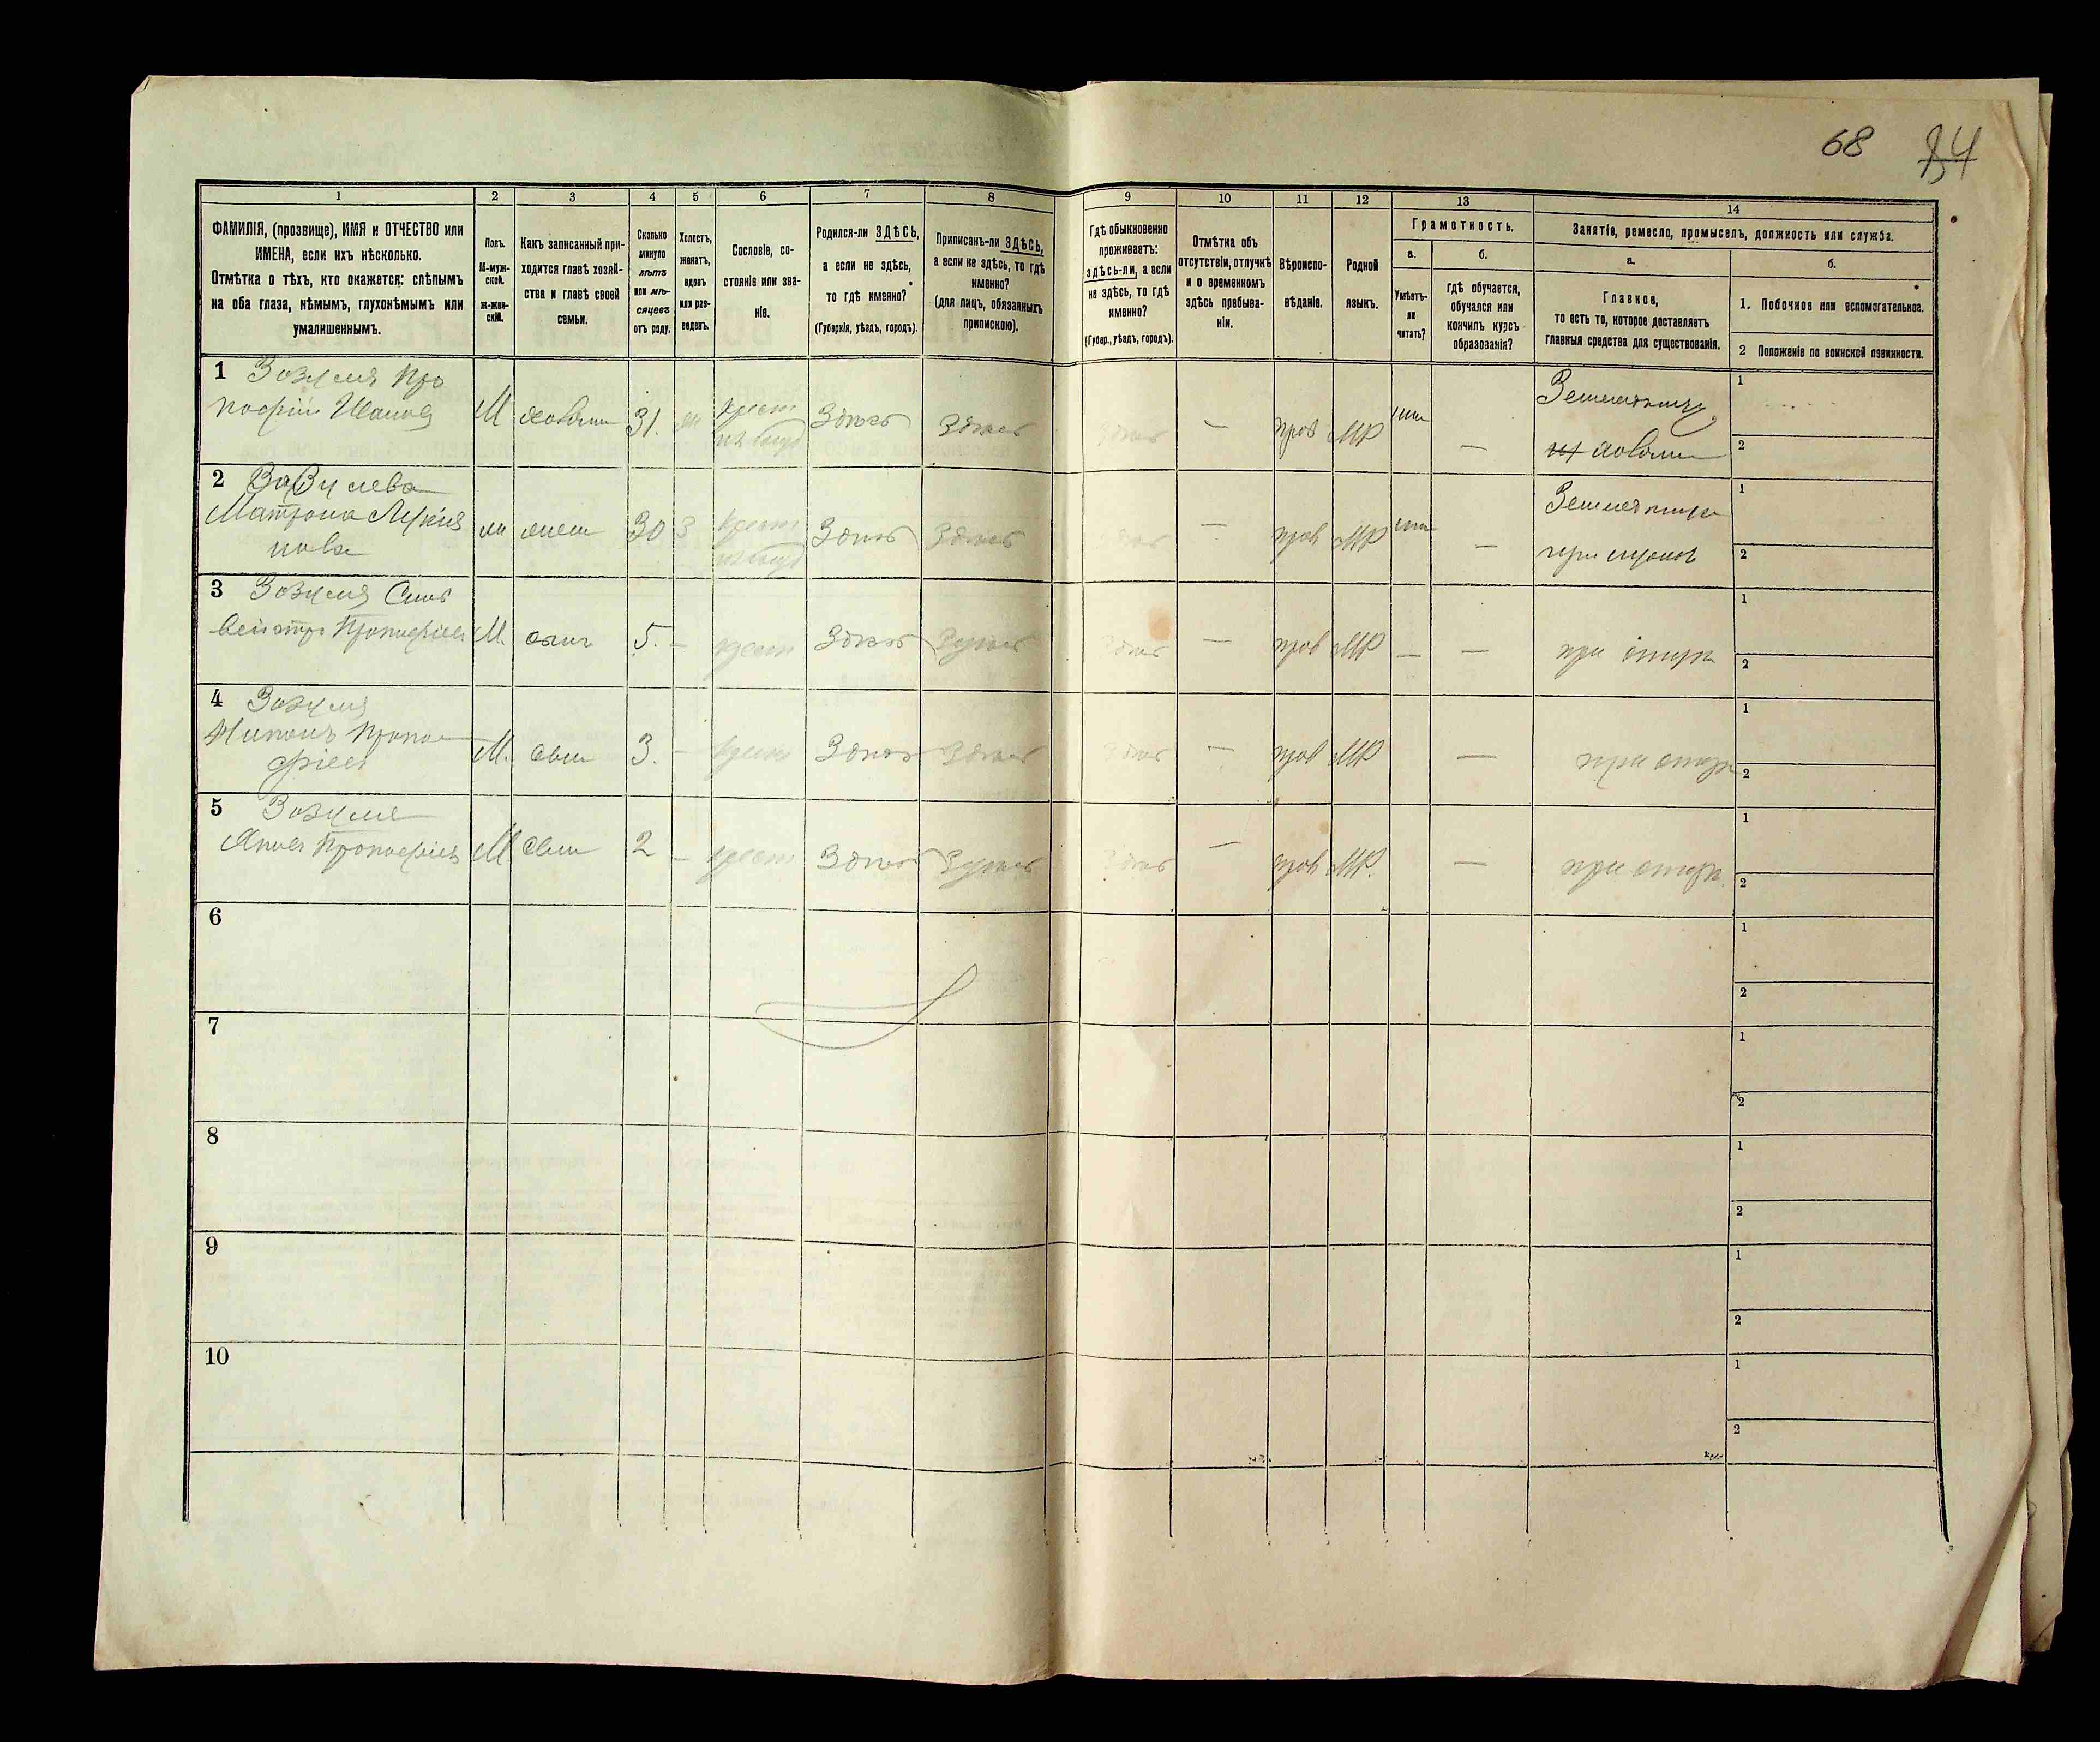 68 84
1 2 3 4 5 6 7 8 9 10 11 12 13 14
ФАМИЛІЯ, (прозвище), ИМЯ и ОТЧЕСТВО или
ИМЕНА, если ихъ нѣсколько.
Отмѣтка о тѣхъ, кто окажется: слѣпымъ
на оба глаза, нѣмымъ, глухонѣмымъ или
умалишеннымъ.
Полъ.
М-муж-
ской.
Ж-жен-
скій.
Какъ записанный при-
ходится главѣ хозяй-
ства и главѣ своей
семьи.
Сколько
минуло
лѣтъ
или мѣ-
сяцевъ
отъ роду.
Холостъ,
женатъ,
вдовъ
или раз-
веденъ.
Сословіе, со-
стояніе или зва-
ніе.
Родился-ли ЗДѢСЬ,
а если не здѣсь,
то гдѣ именно?
(Губернія, уѣздъ, городъ).
Приписанъ-ли ЗДѢСЬ,
а если не здѣсь, то гдѣ
именно?
(для лицъ, обязанныхъ
припискою).
Гдѣ обыкновенно
проживаетъ:
здѣсь-ли, а если
не здѣсь, то гдѣ
именно?
(Губер., уѣздъ, городъ).
Отмѣтка объ
отсутствіи, отлучкѣ
и о временномъ
здѣсь пребыва-
ніи.
Вѣроиспо-
вѣданіе.
Родной
языкъ.
Грамотность.
а.
Умѣетъ-
ли
читать?
б.
гдѣ обучается,
обучался или
кончилъ курсъ
образованія?
Занятіе, ремесло, промыселъ, должность или служба.
а.
Главное,
то есть то, которое доставляетъ
главныя средства для существованія.
б.
1. Побочное или вспомогательное.
2 Положеніе по воинской повинности.
1 Зозуля Про
кофій М 31. Здѣсь Здѣсь Здѣсь — прав МР —
1
2
2
Матрона 30 З Здѣсь Здѣсь — прав МР —
1
2
3 Зозуля Силь
вестръ Прокофіев М. сынъ 5. — крест Здѣсь Здѣсь Здѣсь — прав МР — — при отцѣ
1
2
4 Зозуля
Никонъ Проко
фіев М. сын 3. — крест Здѣсь Здѣсь Здѣсь — прав МР — при отцѣ
1
2
5 Зозуля
Прокофіев М сын 2 — крест Здѣсь Здѣсь Здѣсь — прав МР. — при отцѣ
1
2
6
1
2
7
1
2
8
1
2
9
1
2
10
1
2